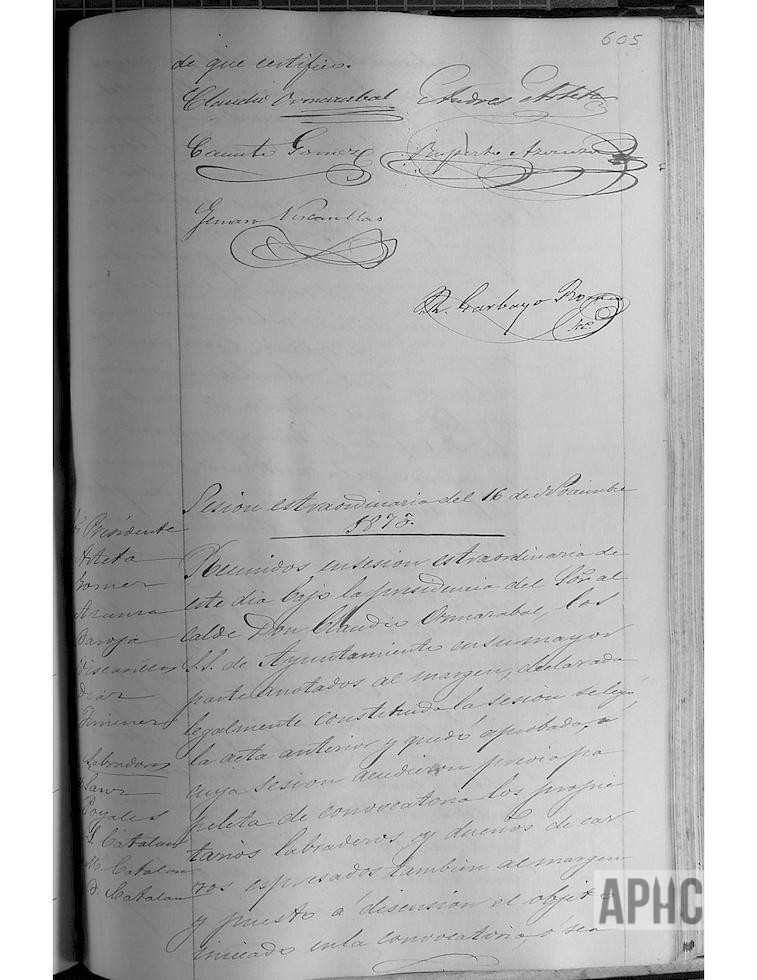 605
de que certifico.
Claudio Ormazabal Andres Arteta
Camilo Gomez Ruperto Azanza
German Viscaillas
R. Garbayo Romeo
Sesion estraordinaria del 16 de Noviembre
1873.
Sr Presidente
Arteta
Gomez
Azanza
Baroja
Diaz
Jimenez
Labradores
Sanz
Poyales
L Catalan
M. Catalan
D. Catalan
Reunidos en sesion estraordinaria de
este dia bajo la presidencia del Sor al
calde Don Claudio Ormazabal, los
S.S. de Ayuntamiento en su mayor
parte anotados al margen, declarada
legalmente constituida la sesion se leyó
la acta anterior y quedó aprobada, a
cuya sesion acudieron previa pa
peleta de convocatoria los propie
tarios labraderos y dueños de car
ros espresados tambien al margen
y puesto á discusion el objeto
iniciado en la convocatoria, ó sea
APHC